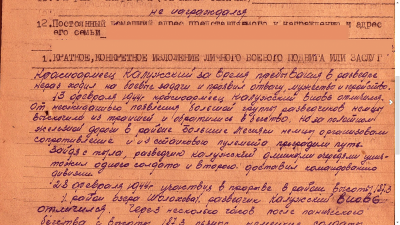 не награждался
12. Постоянный домашний адрес представляемого к награждению и адрес
его семьи
1. КРАТКОЕ, КОНКРЕТНОЕ ИЗЛОЖЕНИЕ ЛИЧНОГО БОЕВОГО ПОДВИГА ИЛИ ЗАСЛУГ
Красноармеец Калужский за время пребывания в разведке
не раз ходил на боевые задачи и проявил отвагу мужество и геройство.
13 февраля 1944г красноармеец Калужский вновь отличился.
От неожиданного появления группы разведчиков немцы
выскочили из траншей и обратились в бегство. Но за полотном
железной дороги в районе Большие немцы организовали
сопротивление и пулеметы преградили путь.
Зайдя с тыла, разведчик Калужский длинными очередями
одного солдата и второго доставил командованию
дивизии.
23 февраля 1944г участвуя в прорыве в районе
/ район озера / разведчик Калужский вновь
отличился. Через несколько часов после панического
бегства с немецкие солдаты